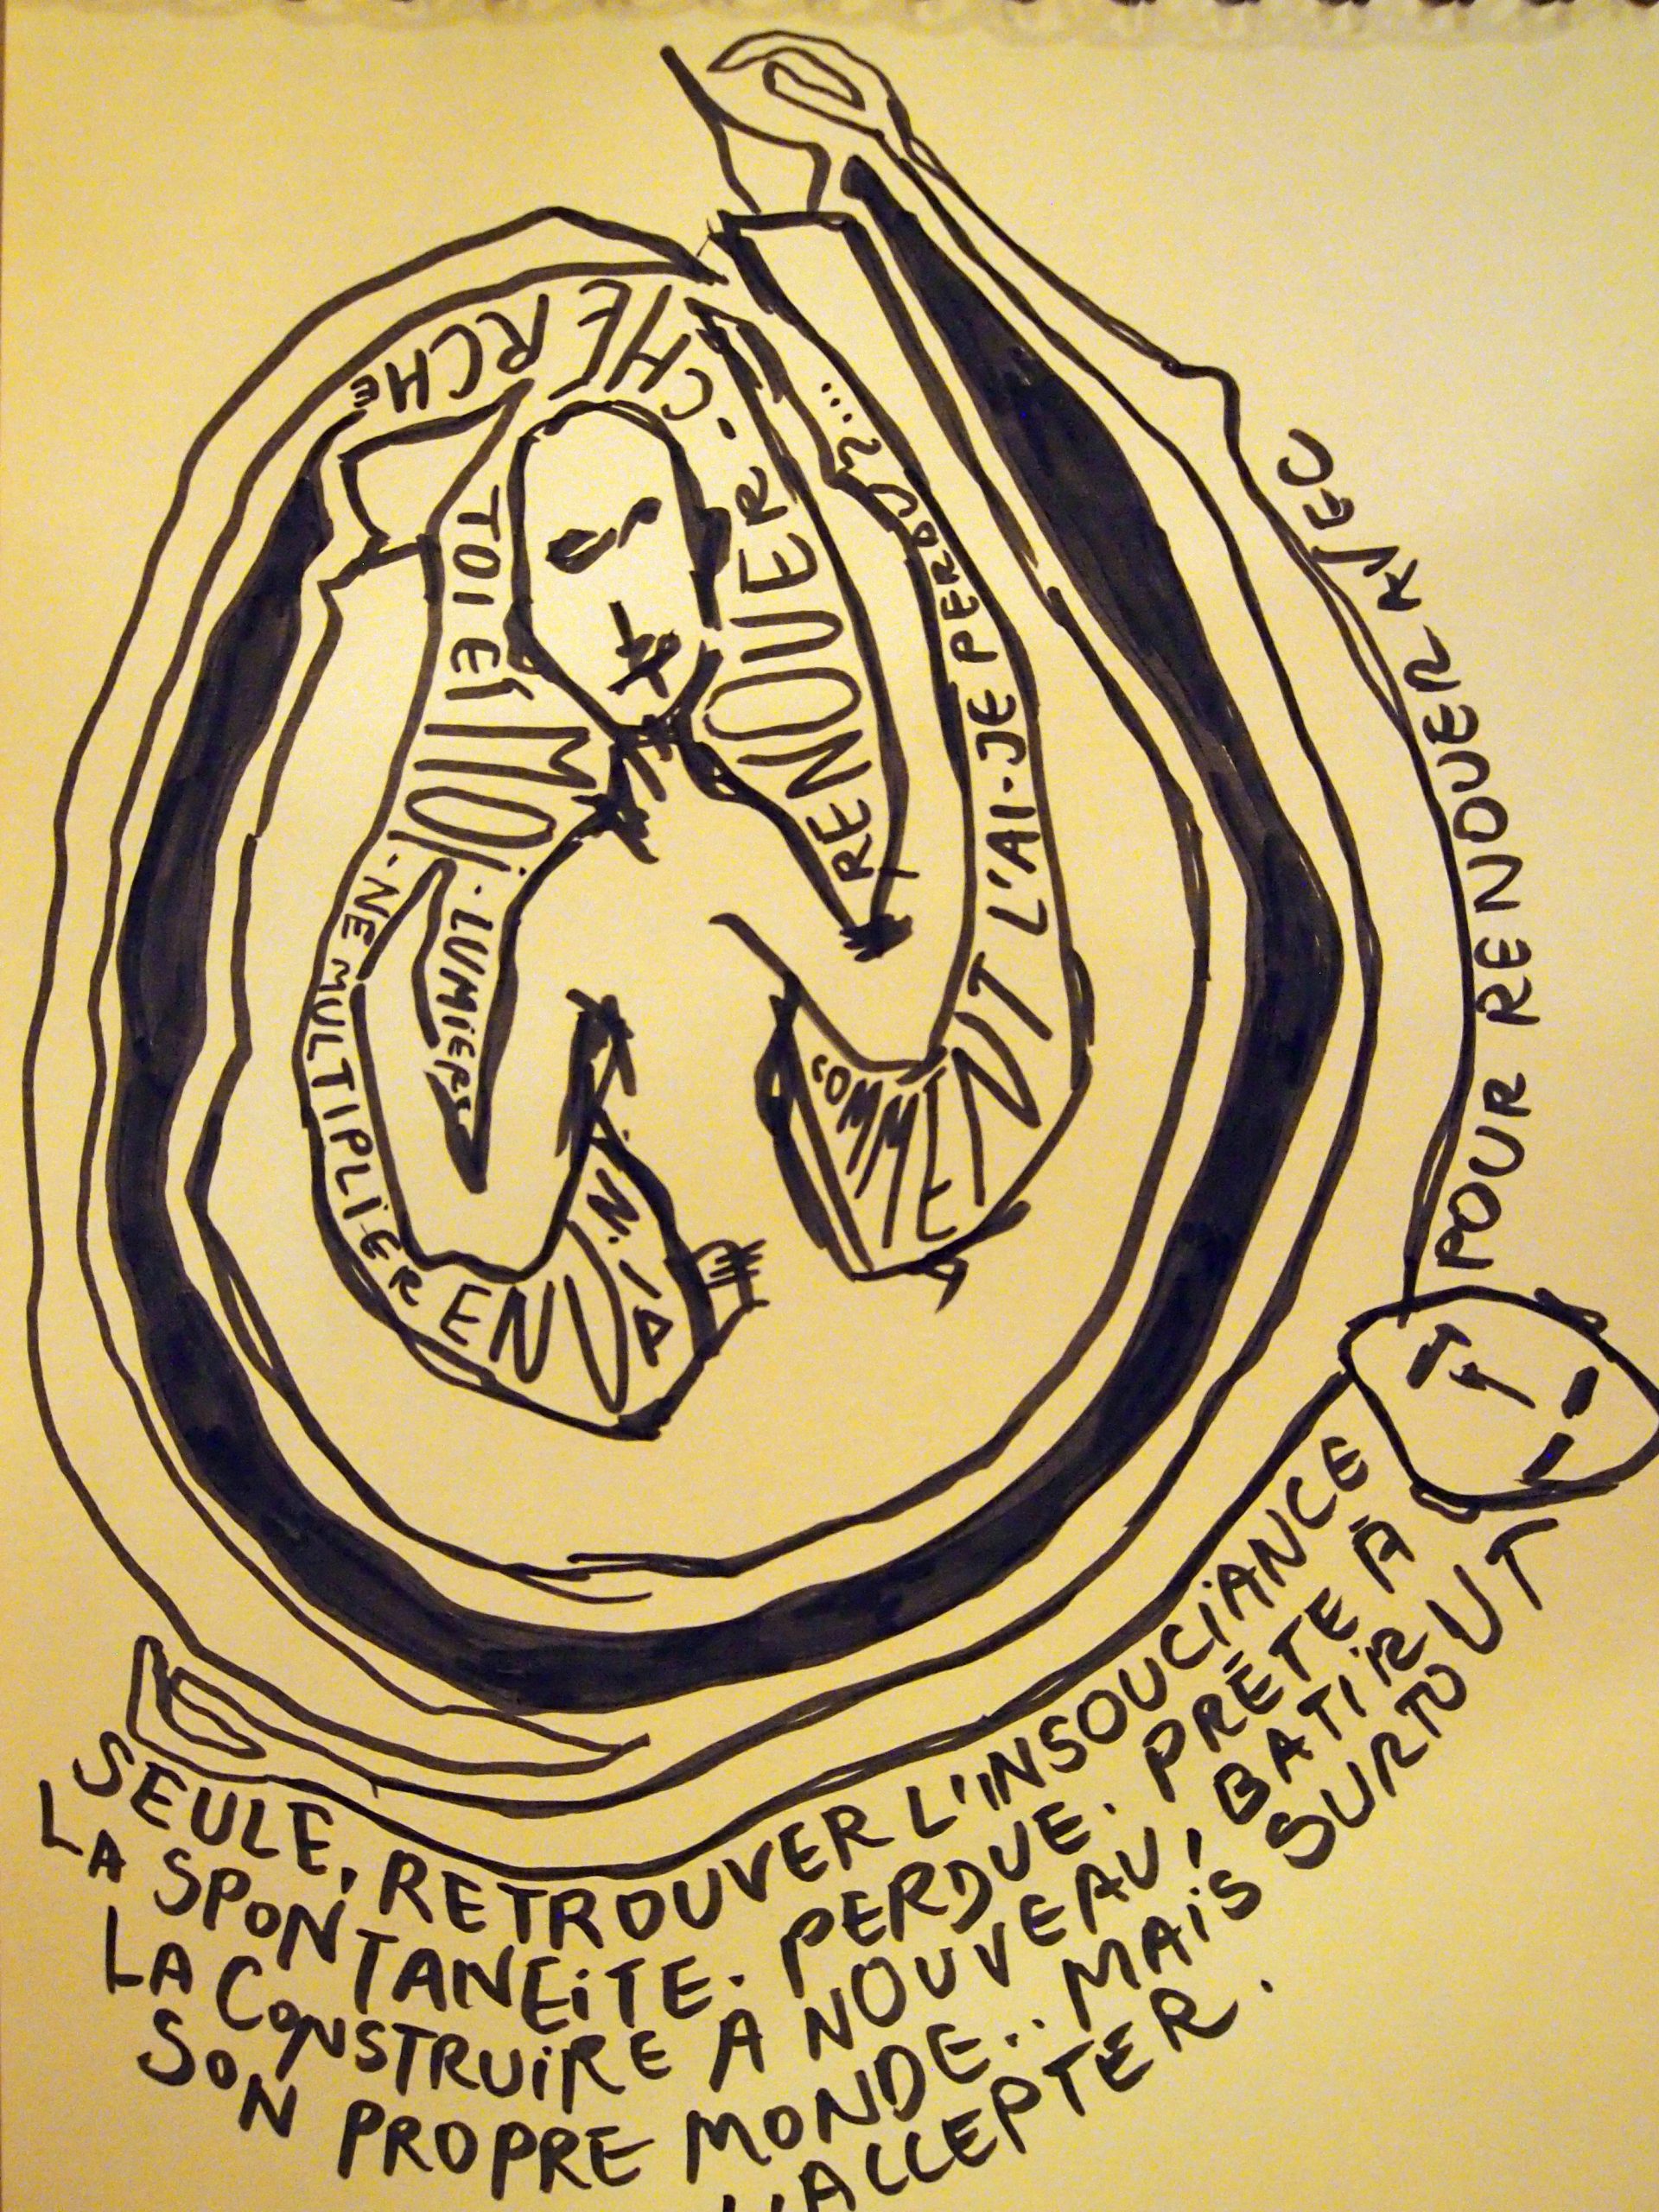 CHERCHE
RENOUER.
TOI Eť MOI. LUMIÈRE
. NE MULTIPLIER
ENVAÏN.
COMMENT L'AI-JE PERDU?...
POUR RENOUER AVEC
SEULE, RETROUVER L'INSOUCIANCE
LA SPONTANEITE. PERDUE. PRÊTE À
LA CONSTRUIRE A NOUVEAU, BATIR
SON PROPRE MONDE.. MAIS SURTOUT
ACCEPTER.